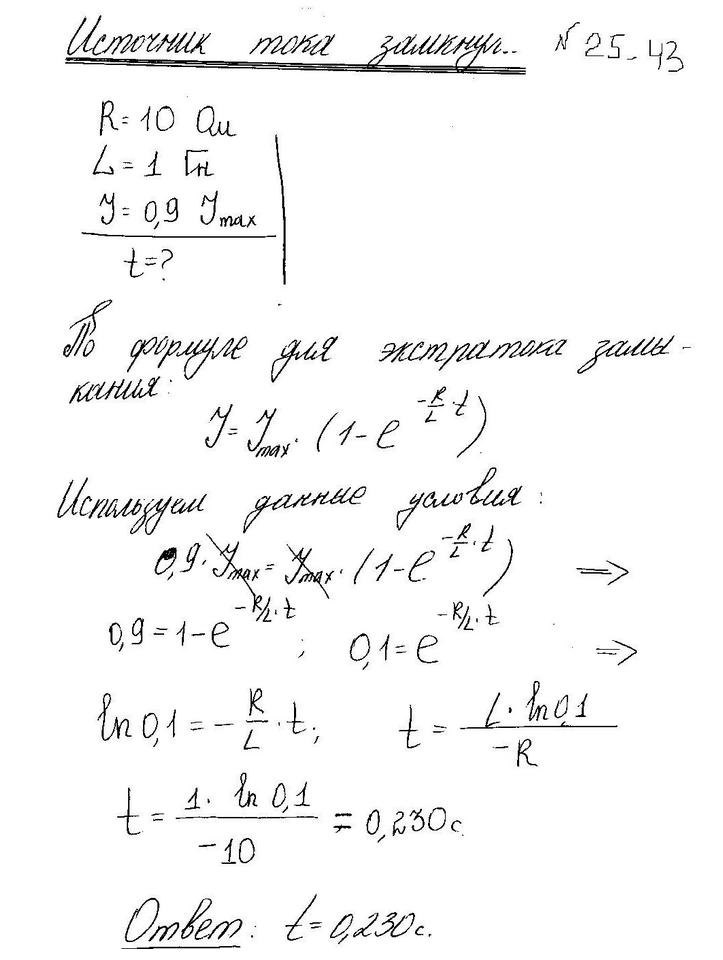 Источник тока замкнул.. № 25-43
R = 10 Ом
L = 1 Гн
J = 0,9 Jmax
t = ?
По формуле для экстратока замы-
кания:
J = Jmax · (1 - e^(-R/L · t))
Используем данные условия:
0,9 · Jmax = Jmax · (1 - e^(-R/L · t)) =>
0,9 = 1 - e^(-R/L · t) ; 0,1 = e^(-R/L · t) =>
ln 0,1 = - R/L · t; t = L · ln 0,1 / -R
t = 1 · ln 0,1 / -10 = 0,230 с.
Ответ: t = 0,230 с.